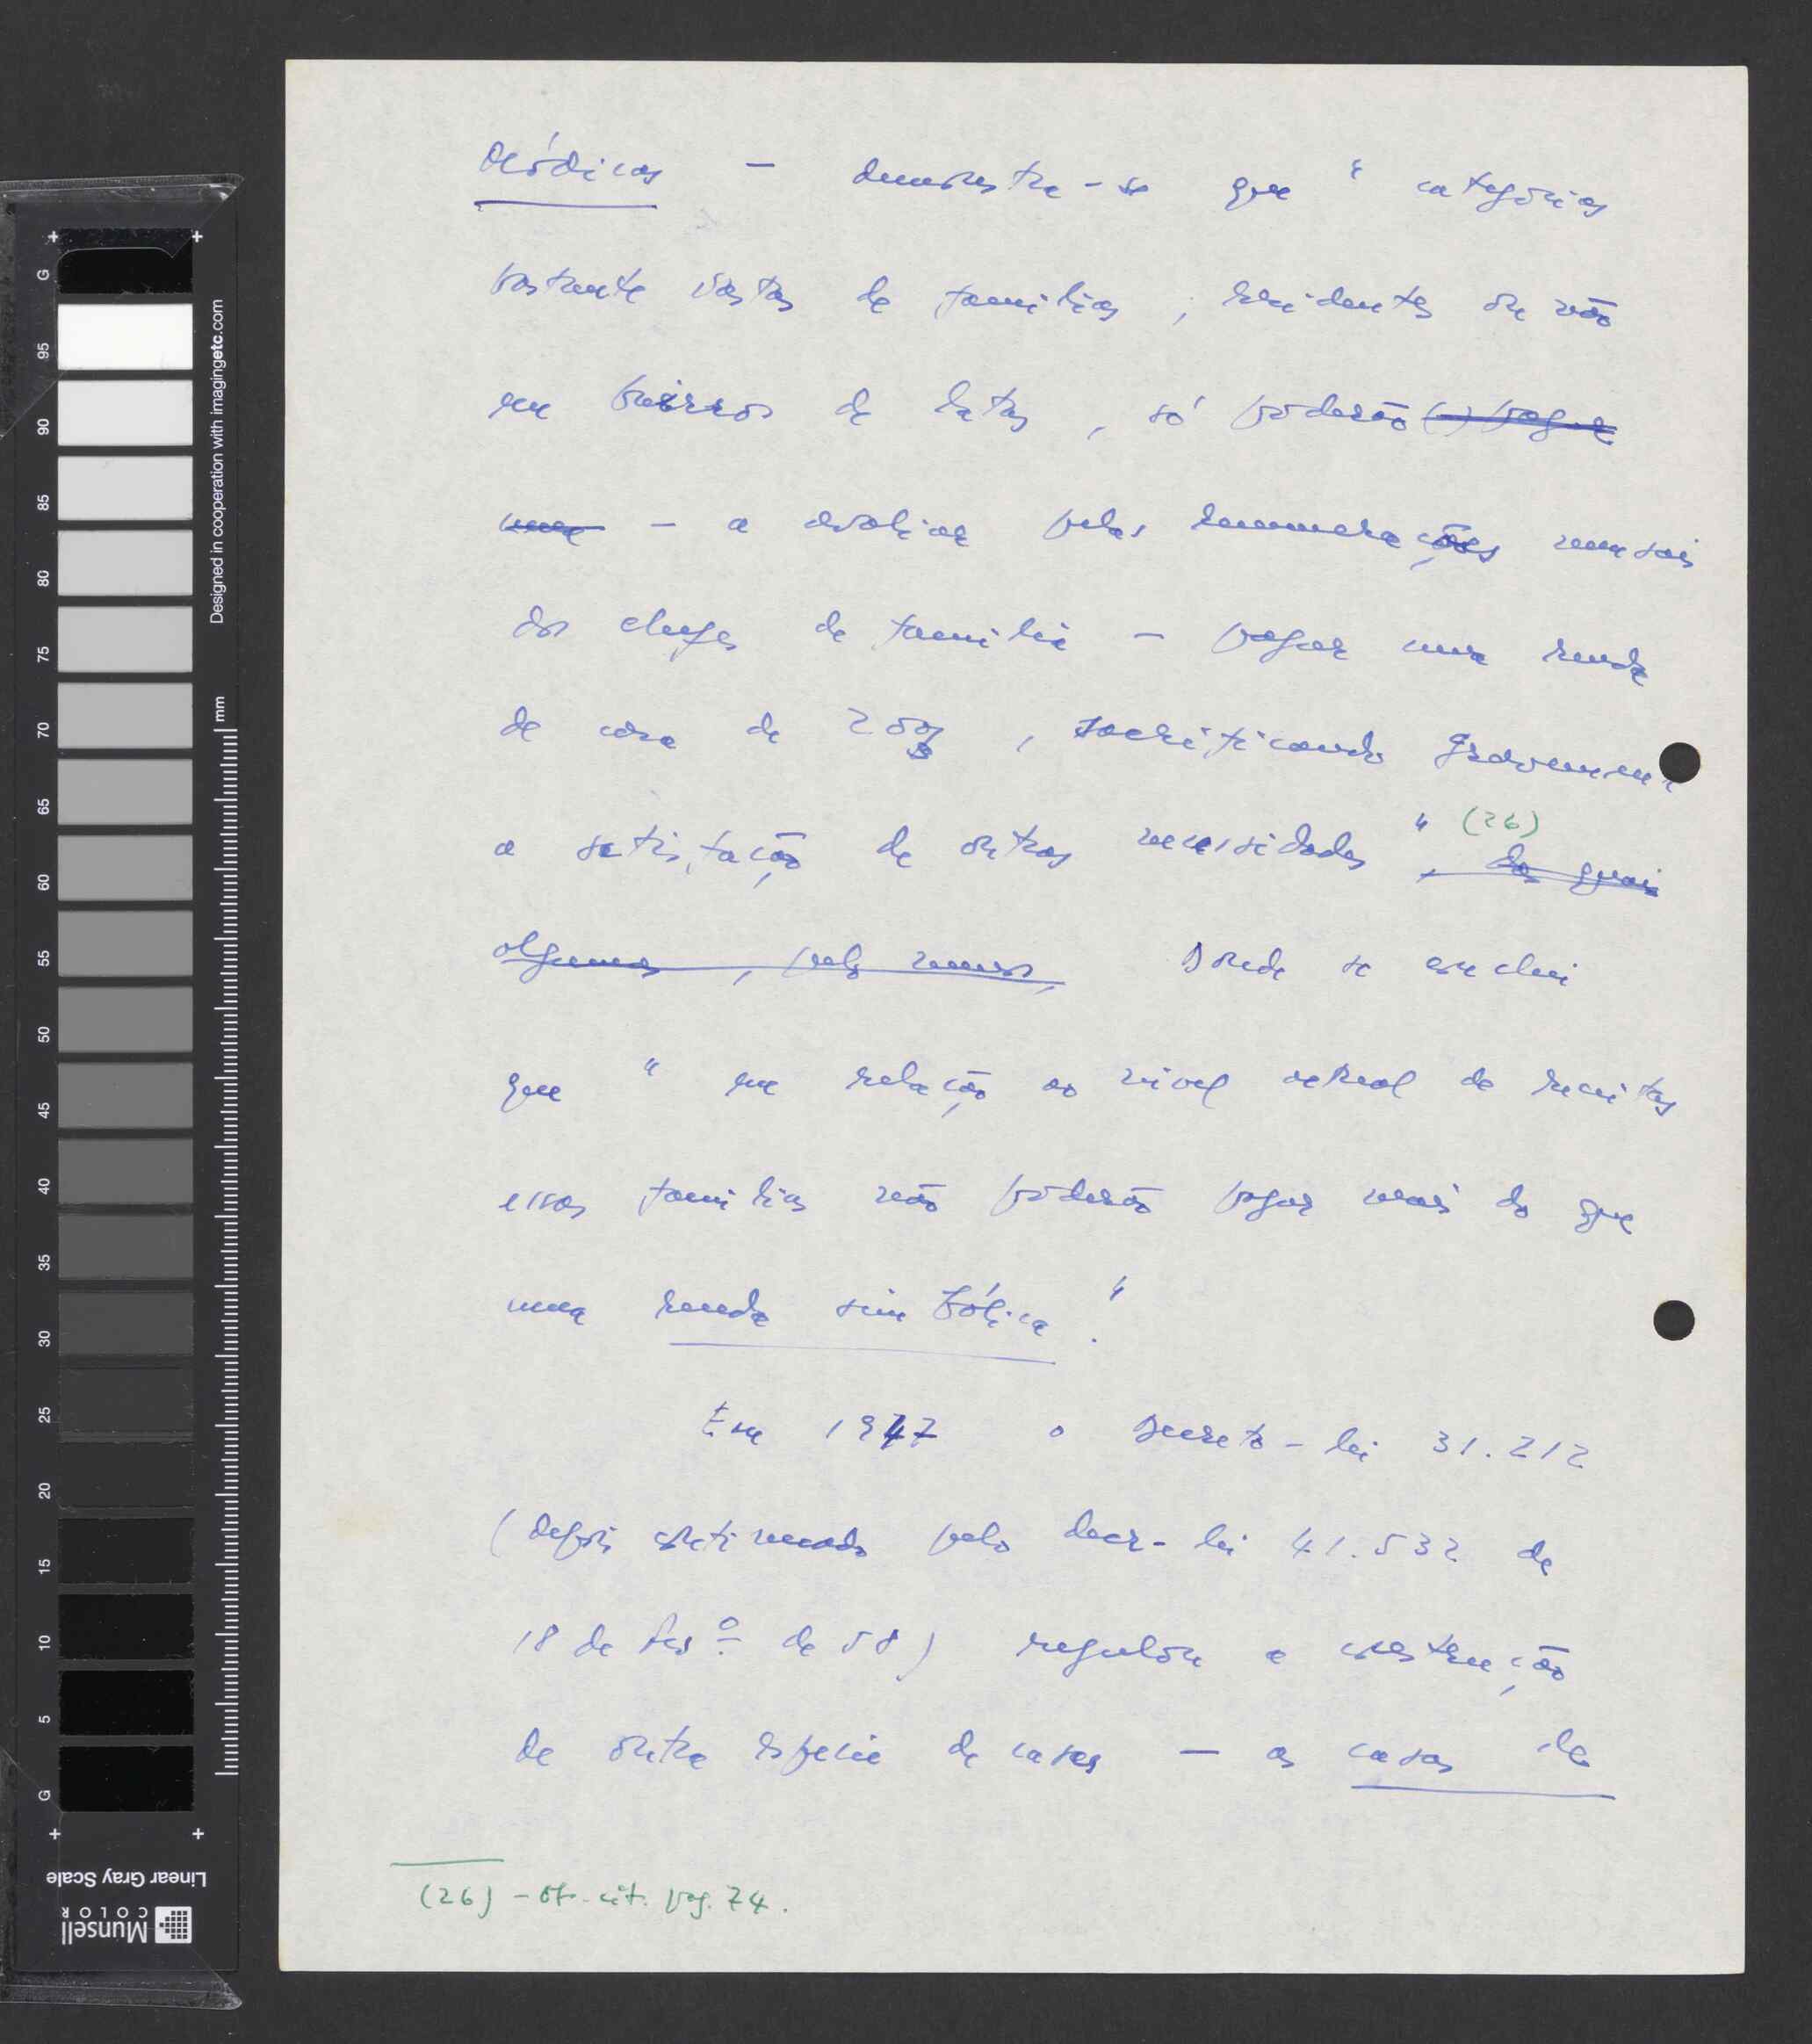 módicas — demonstra-se que "categorias
bastante vastas de familias, residentes ou não
em bairros de latas, só poderão (...) pagar
uma — a avaliar pelas remunerações mensais
dos chefes de familia — pagar uma renda
de casa de 200$, sacrificando gravemen
a satisfação de outras necessidades" (26), das quais
algumas, pelo menos, Donde se conclui
que "em relação ao nivel actual de receitas
essas familias não poderão pagar mais do que
uma renda simbólica."
Em 1947 o Decreto-lei 31.212
(depois continuado pelo decr-lei 41.532 de
18 de Fevº de 58) regulou a construção
de outra espécie de casas — as casas de
(26) — op. cit. pag. 74.
Designed in cooperation with imagingetc.com
mm
G 95 90 85 80 75 70 65 60 55 50 45 40 35 30 25 20 15 10 5 G
Linear Gray Scale
Munsell COLOR